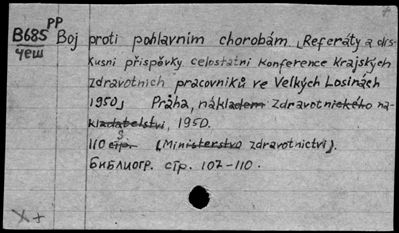 PP
B685 Boj proti pohlavním chorobám. [Referáty a dis-
чеш kusní příspěvky celostatní konference Krajských
zdravotních pracovníků ve Velkých Losinách
1950] Praha, nakladem zdravotnického na-
kladatelství, 1950.
110 s. стр. [Ministerstvo zdravotnictví].
Библиогр. стр. 107-110.
X+